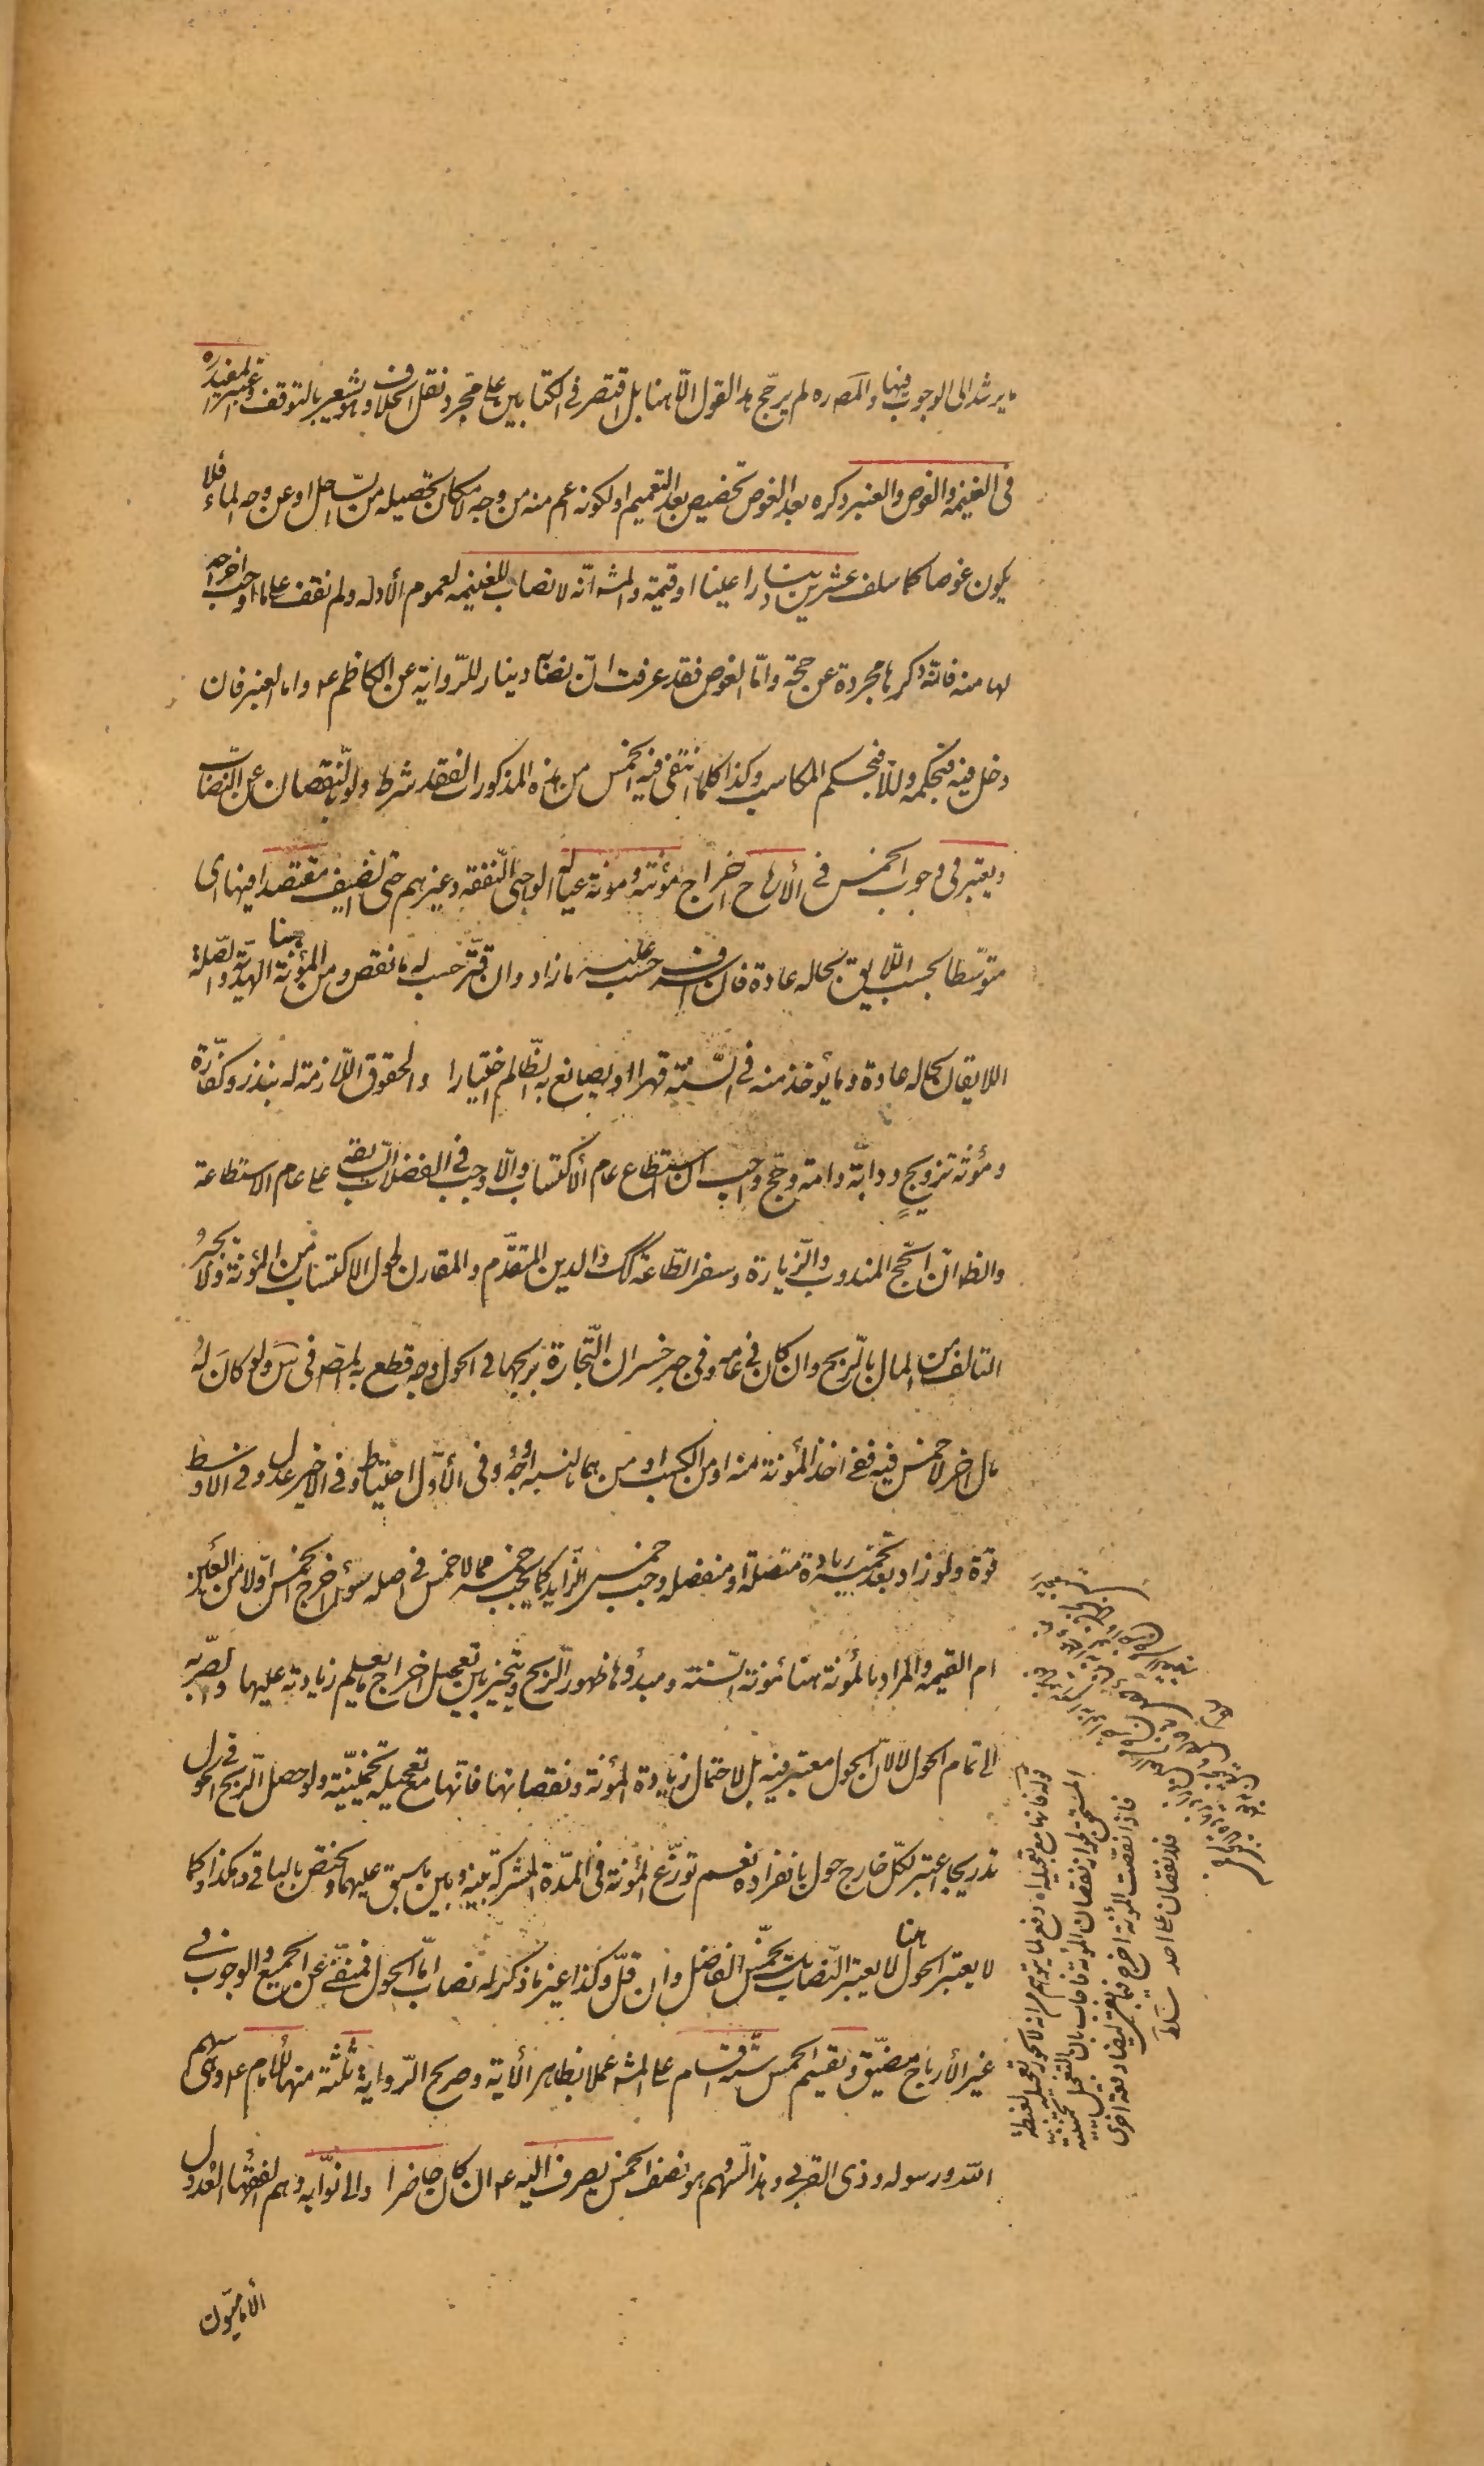 ما يرشد الى الوجوب فيها والمصره لم يرجّح هذا القول الّا هنا بل اقتصر فى الكتابين على مجرّد نقل الخلاف وهو يشعر بالتوقف واعتبر المفيد ره
فى الغنيمه والغوص والعنبر ذكره بعد الغوص تخصيص بعد التعميم او لكونه اعم منه من وجه لامكان تحصيله من السّاحل او عن وجه الماء فلا
يكون غوصا كما سلف عشرين دينارا عينا او قيمة والمشه انّه لا نصاب للغنيمه لعموم الأدلة ولم نقف على ما اوجب اخراجه
لها منه فانّه ذكرها مجردة عن حجّة وامّا الغوص فقد عرفت انّ نصابه دينار للرّواية عن الكاظم ع واما العنبر فان
دخل فيه فبحكمه والّا فبحكم المكاسب وكذا كلما انتفى فيه الخمس من هذه المذكورات لفقد شرط ولو بالنّقصان عن النّصاب
ويعتبر فى وجوب الخمس فى الأرباح اخراج مؤنته ومؤنة عياله الواجبى النّفقه وغيرهم حتى الضيف مقتصدا فيها اى
متوسّطا بحسب اللّايق بحاله عادة فان اسرف حسب عليه ما زاد وان قتّر حسب له ما نقص ومن المؤنة هنا الهديّة والصّلة
اللايقان بحاله عادة وما يؤخذ منه فى السّنة قهرا او يصانع به الظّالم اختيارا والحقوق اللّازمة له بنذر وكفّارة
ومؤنة تزويجٍ ودابّة وامة وحجّ واجب ان استطاع عام الاكتساب والّا وجب فى الفضلات السّابقه على عام الاستطاعة
والظ انّ الحجّ المندوب والزّيارة وسفر الطّاعة كك والدين المتقدّم والمقارن لحول الاكتساب من المؤنة ولا يجبرُ
التالف من المال بالرّبح وان كان فى عامه وفى جبر خسران التّجارة بربحها فى الحول وجه قطع به المصّ فى س ولو كان لهُ
مال اخر لا خمس فيه ففى اخذ المؤنة منه او من الكسب او منهما بالنسبه اوجُه وفى الأوّل احتياط وفى الاخير عدل وفى الاوسط
قوّة ولو زاد بعد تخميسه زيادة متصلة او منفصله وجب خمس الزّايد كما يجب خمسه مما لا خمس فى اصله سواء اخرج الخمس اوّلا من العين
ام القيمه والمراد بالمؤنة هنا مؤنة السّنة ومبدؤها ظهور الرّبح ويتخيّر بين تعجيل اخراج ما يعلم زيادته عليها والصّبر به
الى تمام الحول لا لانّ الحول معتبر فيه بل لاحتمال زيادة المؤنة ونقصانها فانّها مع تعجيله تخمينيّة ولو حصل الرّبح فى الحول
تدريجا اعتبر لكلّ خارج حول بانفراده نعم توزّع المؤنة فى المدّة المشتركة بينه وبين ما سبق عليهما ويختص بالباقى وهكذا وكما
لا يعتبر الحول هنا لا يعتبر النّصاب بل يخمّس الفاضل وان قلّ وكذا غير ما ذكر له نصاب امّا الحول فمنفىّ عن الجميع والوجوب فى
غير الأرباح مضيّق ويقسم الخمس ستّة اقسام على المشه عملا بظاهر الأية وصريح الرّواية ثلثة منها للامام ع وهى سهم
اللّه ورسوله وذى القربى وهذا السّهم هو نصف الخمس يصرف اليه ع ان كان حاضرا والى نوّابه وهم الفقهاء العدول
الأماميّون
قوله فانها مع تعجيله اه دفع لما يتوهم من انه لا يجوز تعجيله لغبطة
المستحق لجواز نقصان المؤنة فاجاب بان التعجيل تخمينية
فاذا نقصت المؤنة اخرج فيما بقى ايضا دفعة اخرى
فلا نقصان على احد سلط